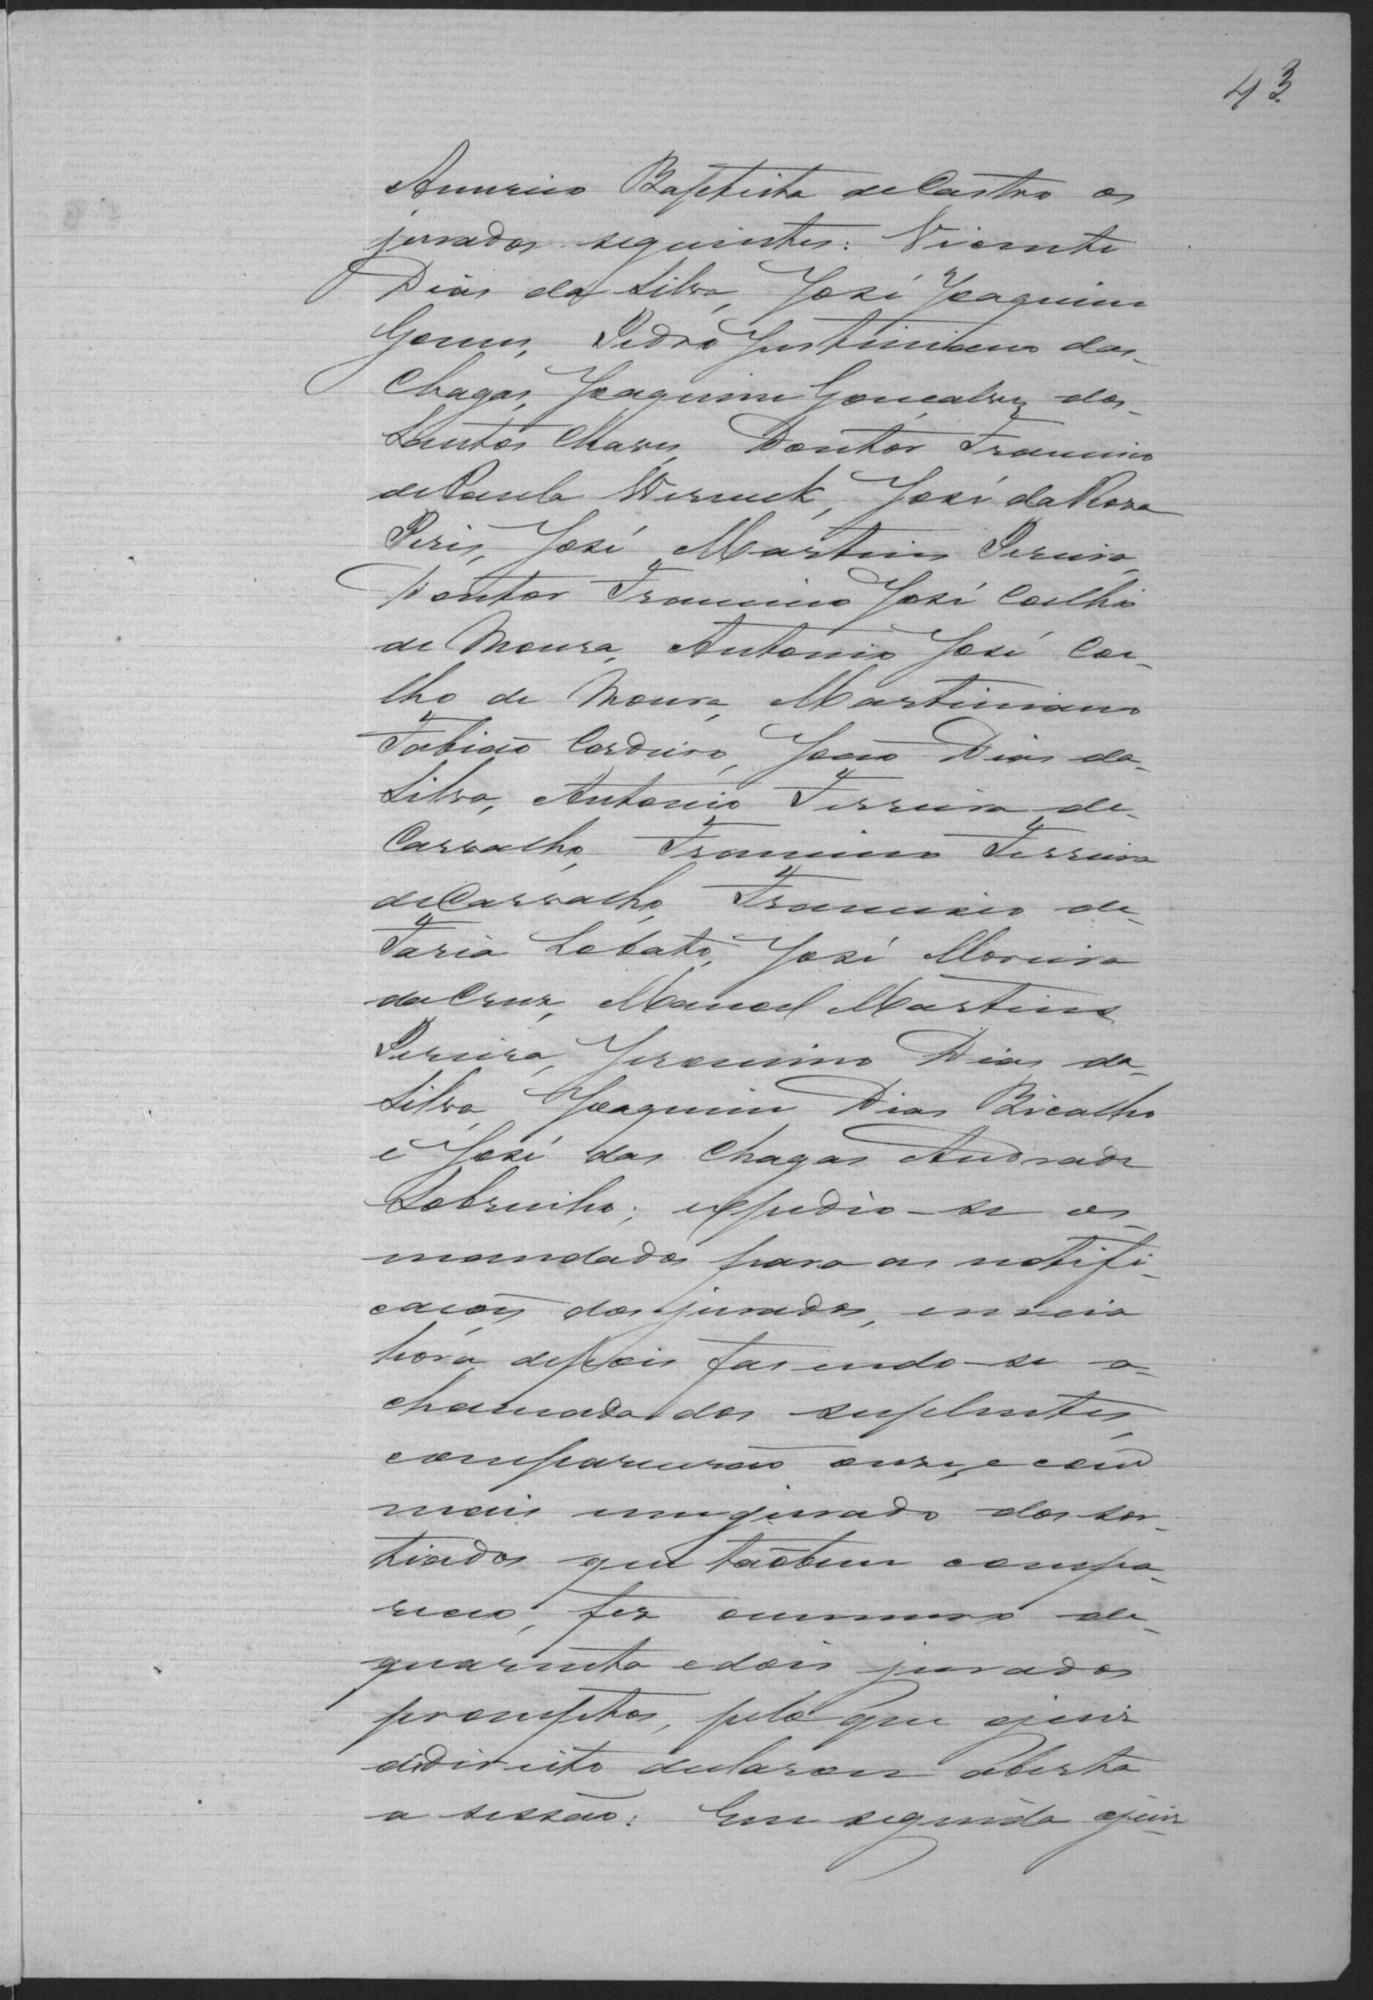 43
Americo Baptista de Castro os
jurados seguintes: Vicente
Dias da Silva, José Joaquim
Gomes, Pedro Justiniano das
Chagas, Joaquim Gonçalves dos
Santos Chaves, Doutor Francisco
de Paula Werneck, José da Roza
Peris, José Martins Pereira,
Doutor Francisco José Coelho
de Moura, Antonio José Coe-
lho de Moura, Martiniano
Fabião Cordeiro, João Dias da
Silva, Antonio Ferreira de
Carvalho, Francisco Ferreira
de Carvalho, Francisco de
Faria Lobato, José Moreira
da Cruz, Manoel Martins
Pereira, Jeronimo Dias da
Silva, Joaquim Dias Bicalho
e José das Chagas Andrade
Sobrinho; expedio-se os
mandados para as notifi-
cações dos jurados, e meia
hora depois fasendo-se a
chamada dos suplentes,
comparecerão onze, e com
mais um jurado dos sor-
tiados que tãobem compa-
receo, fez o numero de
quarenta e dois jurados
promptos, pelo que o juiz
de direito declarou aberta
a sessão. Em seguida o juiz